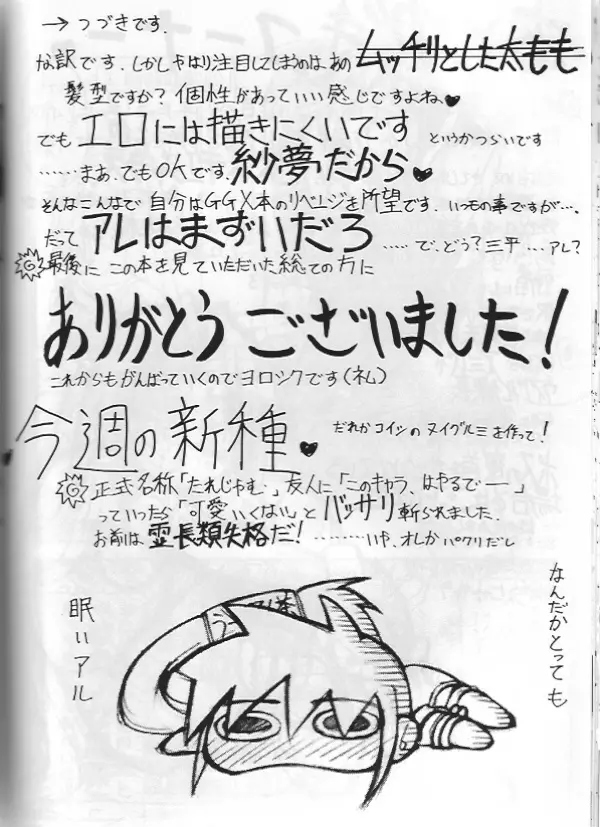 →つづきです.
な訳です.しかしやはり注目してしまうのは、あの ムッチリとした太もも
髪型ですか? 個性があっていい感じですよね、♥
でも エロには描きにくいです というかつらいです
……まぁ、でもOKです.紗夢だから♥
そんなこんなで 自分はGGX本のリベンジを所望です. いつもの事ですが…、
だって アレはまずいだろ ……で、どう? 三平 …アレ?
最後に この本を見ていただいた総ての方に
ありがとう ございました!
これからもがんばっていくのでヨロシクです(ネし)
今週の新種♥ だれかコイツのヌイグルミを作って!
正式名称「たれじゃむ.」友人に「このキャラ、はやるでー」
っていったら「可愛いくない」と バッサリ 斬られました.
お前は霊長類失格だ! ………いや、オレがパクリだし
なんだかとっても
眠いアル